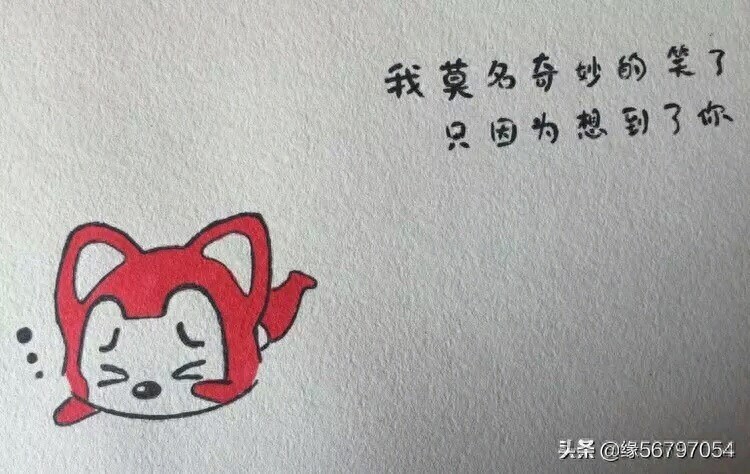 我莫名奇妙的笑了
只因为想到了你
头条 @缘56797054